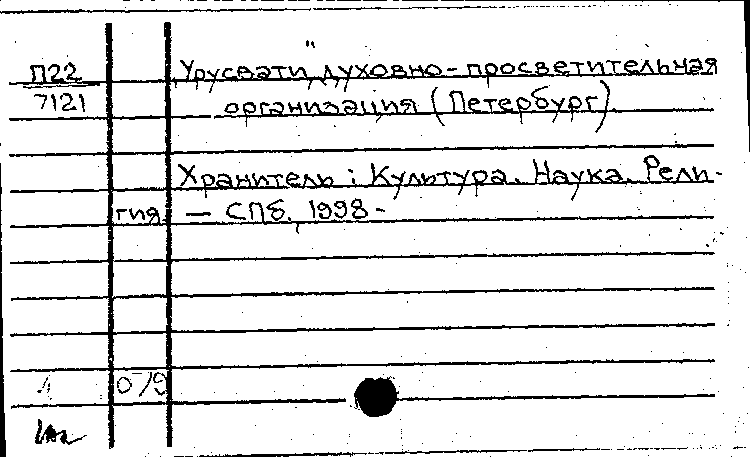 П22
7121
„Урусвати", духовно-просветительная
организация (Петербург)
Хранитель: Культура. Наука. Рели-
гия — СПб, 1998-
1 079